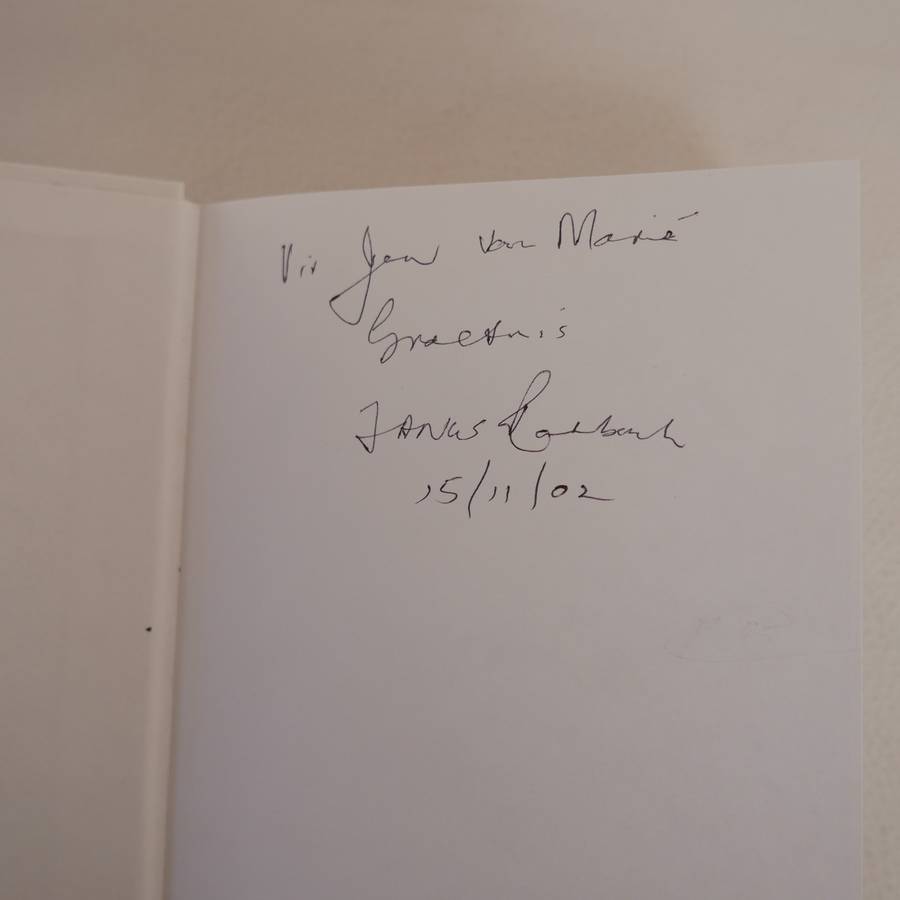 Vir Jan van Marié
Groetnis
JANUS
15/11/02